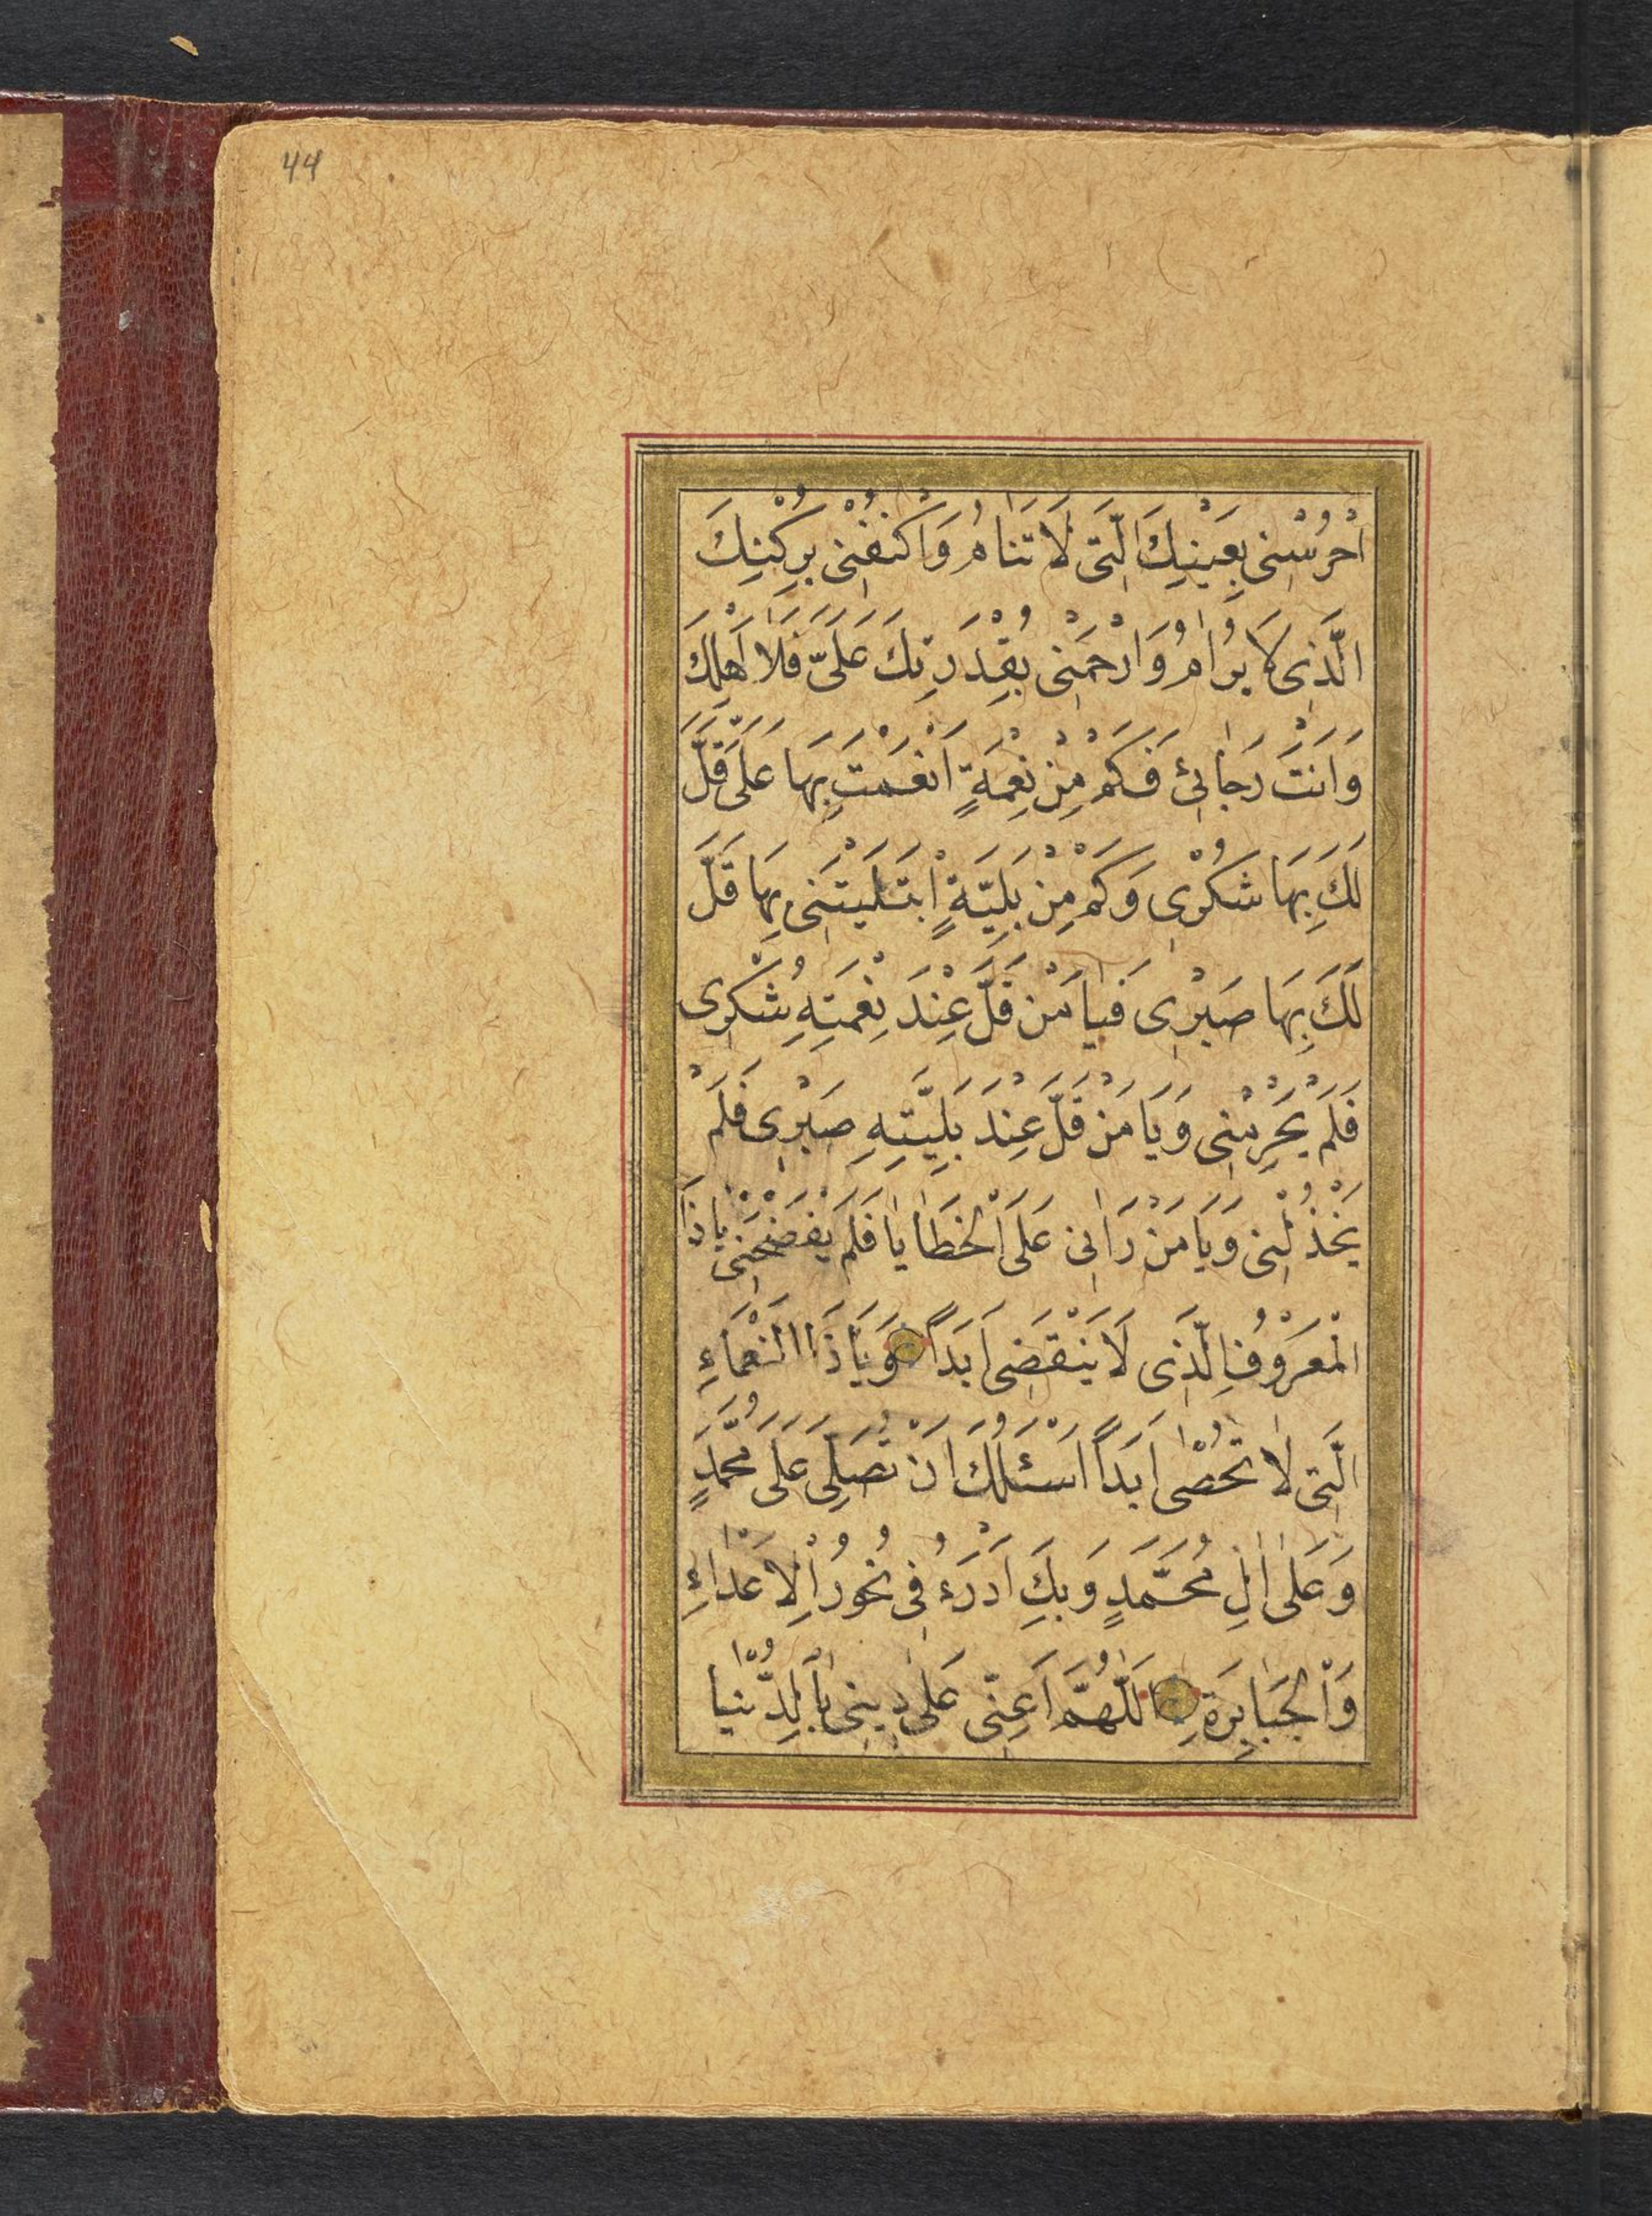 44
اُحْرُسْنِى بِعَيْنِكَ الَّتِى لَا تَنَامُ وَاكْنُفْنِى بِرُكْنِكَ
الَّذِى لَا يُرَامُ وَارْحَمْنِى بِقُدْرَتِكَ عَلَىَّ فَلَا اَهْلِكُ
وَاَنْتَ رَجَائِىْ فَكَمْ مِنْ نِعْمَةٍ اَنْعَمْتَ بِهَا عَلَىَّ قَلَّ
لَكَ بِهَا شُكْرِى وَكَمْ مِنْ بَلِيَّةٍ اِبْتَلَيْتَنِى بِهَا قَلَّ
لَكَ بِهَا صَبْرِى فَيَا مَنْ قَلَّ عِنْدَ نِعْمَتِهِ شُكْرِى
فَلَمْ يَحْرِمْنِى وَيَا مَنْ قَلَّ عِنْدَ بَلِيَّتِهِ صَبْرِى فَلَمْ
يَخْذُلْنِى وَيَا مَنْ رَاٰنِى عَلَى الْخَطَايَا فَلَمْ يَفْضَحْنِى يَا ذَا
الْمَعْرُوْفِ الَّذِى لَا يَنْقَضِى اَبَدًا وَيَا ذَا النَّعْمَاءِ
الَّتِى لَا تُحْصٰى اَبَدًا اَسْئَلُكَ اَنْ تُصَلِّىَ عَلَى مُحَمَّدٍ
وَعَلٰى اٰلِ مُحَمَّدٍ وَبِكَ اَدْرَءُ فِى نُحُوْرِ الْاَعْدَاءِ
وَالْجَبَابِرَةِ اَللّٰهُمَّ اَعِنِّى عَلٰى دِينِى بِالدُّنْيَا